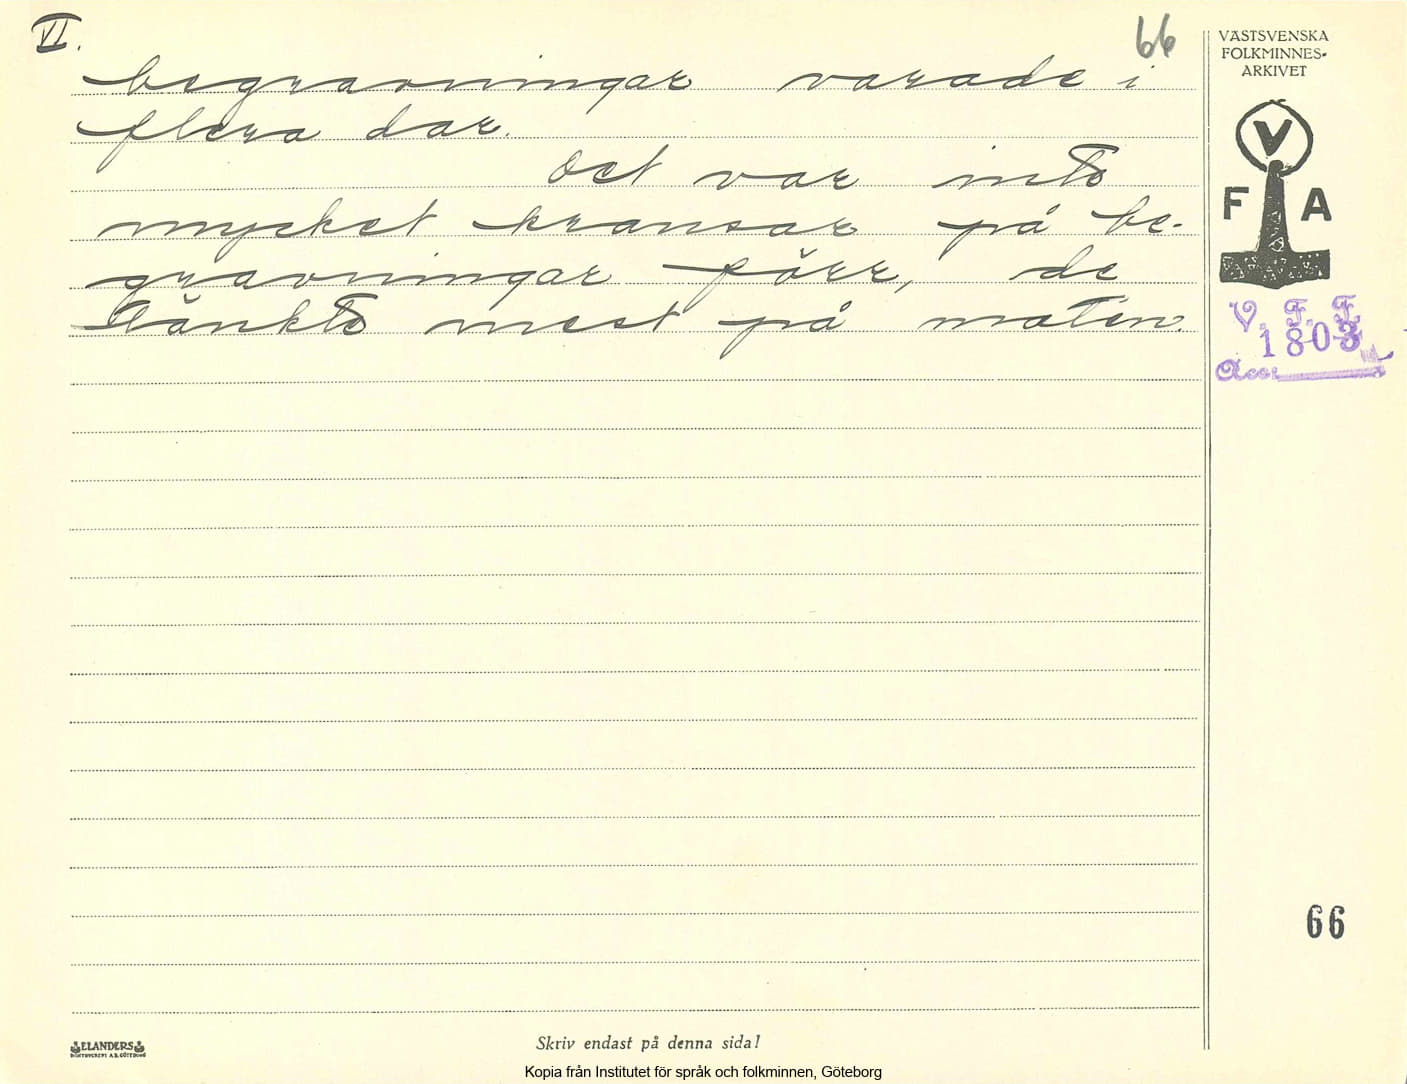 VI.
66
begravningar varade i
flera dar.
Det var inte
mycket kransar på be-
gravningar förr, de
tänkte mest på maten.
VÄSTSVENSKA
FOLKMINNES-
ARKIVET
V
F A
V. F. F.
1803
Acc:
66
ELANDERS
BOKTRYCKERI A.B. GÖTEBORG
Skriv endast på denna sida!
Kopia från Institutet för språk och folkminnen, Göteborg